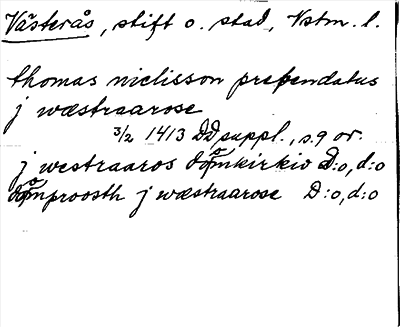 Västerås, stift o. stad, Vstm. l.
thomas niclisson prebendatus
j wæstraarose
3/2 1413 DD suppl., s. 9 or.
j westraaros domkirkio D:o, d:o
domproosth j wæstraarose D:o, d:o